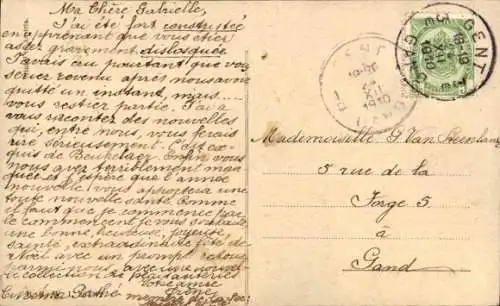 Ma Chère Gabrielle,
J'ai été fort constristée
en apprenant que vous étiez
assez gravement disloquée
J'avais cru pourtant que vous
seriez revenue après nous avoir
quitté un instant, mais
vous restiez partie. J'ai à
vous raconter des nouvelles
qui, entre nous, vous feraient
rire sérieusement. C'est ex-
quis de Beukelaer. Enfin vous
nous avez terriblement man-
quée et j'espère que l'année
nouvelle vous apportera une
toute nouvelle santé. Comme
il faut que je commence par
le commencement je vous souhaite
une bonne, heureuse, joyeuse,
sainte, extraordinaire fête de
Noël avec un prompt retour
parmi nous, avec une nouvelle
collection de plaisanteries
Votre amie
GENT
GAND
XII
1910
Mademoiselle G. Van
5 rue de la
Forge 5
à
Gand